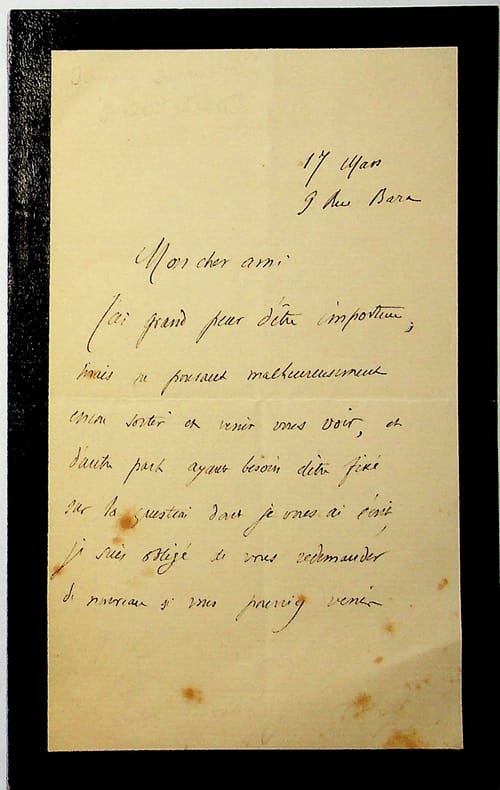 17 Mars
9 Rue Bara
Mon cher ami
J'ai grand peur d'être importun,
mais ne pouvant malheureusement
encore sortir et venir vous voir, et
d'autre part ayant besoin d'être fixé
sur la question dont je vous ai écrit,
je suis obligé de vous redemander
de nouveau si vous pouviez venir